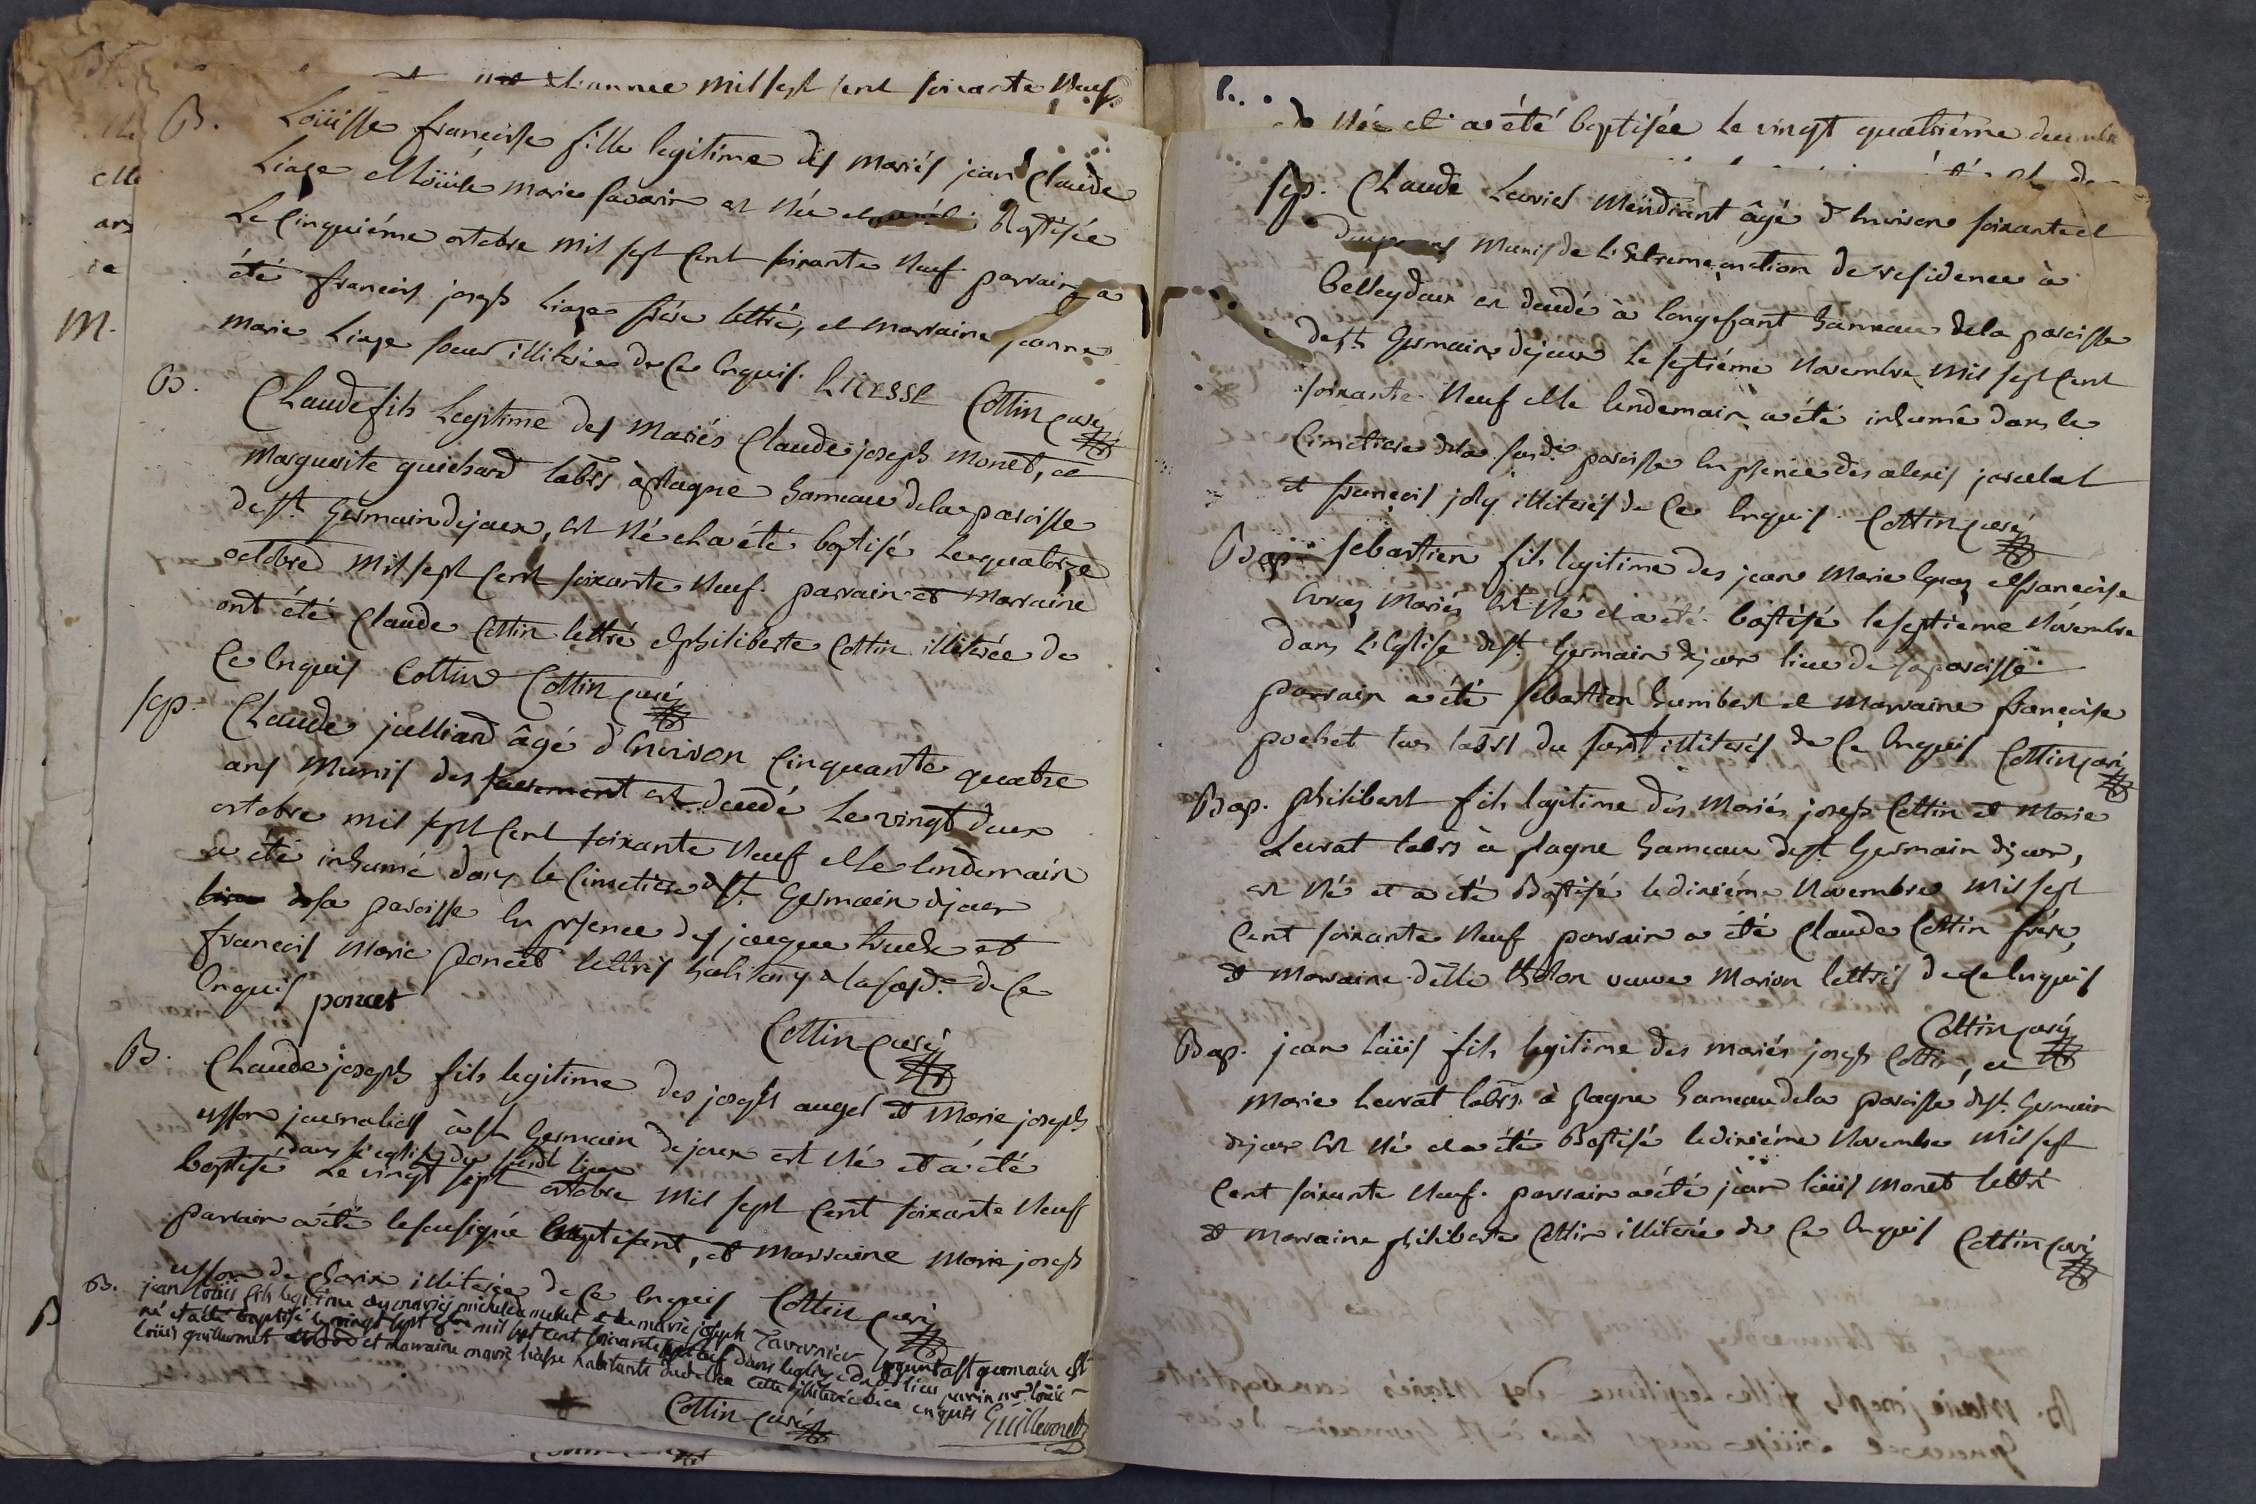 l'annee mil sept cent soixante neuf
B. Loüisse françoise fille legitime des mariés jean Claude
Liaze et Loüise marie favoir est née et Baptisée
Le cinquiéme octobre mil sept cent soixante neuf parrain a
été françois joseph Liaze frére lettré, et marraine jeanne
marie Liaze soeur illiterée de ce enquis. Cottin curé
B. Claude fils Legitime des mariés Claude joseph monet, et
marguerite guichard labrs à plagne hameau de la paroisse
de st. Germain dejoux, est né et a été baptisé le quatorze
octobre mil sept cent soixante neuf. parrain et marraine
ont été Claude Cottin lettré et philiberte Cottin illiterée de
ce enquis Cottin Cottin curé
sep. Claude julliand âgé d'environ cinquante quatre
ans munis des sacrement est decedé le vingt deux
octobre mil sept cent soixante neuf et le lendemain
a été inhumé dans le cimetiere de st. Germain dejoux
de sa paroisse en presence des jacque et
francois marie poncet lettrés habitans a la susd. de ce
enquis poncet
Cottin curé
B. Claude joseph fils legitime des joseph auger et marie joseph
uffon journaliers à st Germain dejoux est né et a été
dans l'eglise du susdt lieu
baptisé Le vingt sept octobre mil sept cent soixante neuf
parrain a été le sousigné, et marraine marie joseph
uffon de illiterée de ce enquis Cottin curé
B. jean loüis fils legitime des mariés michel et de marie joseph Tavernier st germain est
né et a été baptisé le vingt sept mil sept cent soixante neuf dans leglise dudt lieu parrain loüis
loüis guillermet et marraine marie habitante dudt lieu cette illiterée de ce enquis
Cottin curé Guillermet
née et a été baptisée Le vingt quatriéme
sep. Claude Levrier mendiant âgé d'environ soixante et
munis de l'Extreme onction de residence à
Belleydoux est decedé à longefant hameau de la paroisse
de st. Germain dejoux le septiéme novembre mil sept cent
soixante neuf et le lendemain a été inhumé dans le
cimetiere de la susd. paroisse en presence des alexis
et françois joly illiterés de ce enquis. Cottin curé
Bap. sebastien fils legitime des jean marie et françoise
mariés est né et a été baptisé le septiéme novembre
dans L'eglise de st. Germain dejoux lieu de sa paroisse
parrain a été sebastien humbert et marraine françoise
pochet tous labrs du susdt illiterés de ce enquis Cottin curé
Bap. philibert fils legitime des mariés joseph Cottin et marie
Levrat labrs à plagne hameau de st. Germain dejoux,
est né et a été Baptisé le dixiéme novembre mil sept
cent soixante neuf parrain a été Claude Cottin frére,
et marraine delle veuve marion lettrés de ce enquis
Cottin curé
Bap. jean loüis fils legitime des mariés joseph Cottin, et
marie Levrat labrs. à plagne hameau de la paroisse de st. Germain
dejoux est né et a été Baptisé le dixiéme novembre mil sept
cent soixante neuf. parrain a été jean loüis monet lettré
et marraine philiberte Cottin illiterée de ce enquis Cottin curé